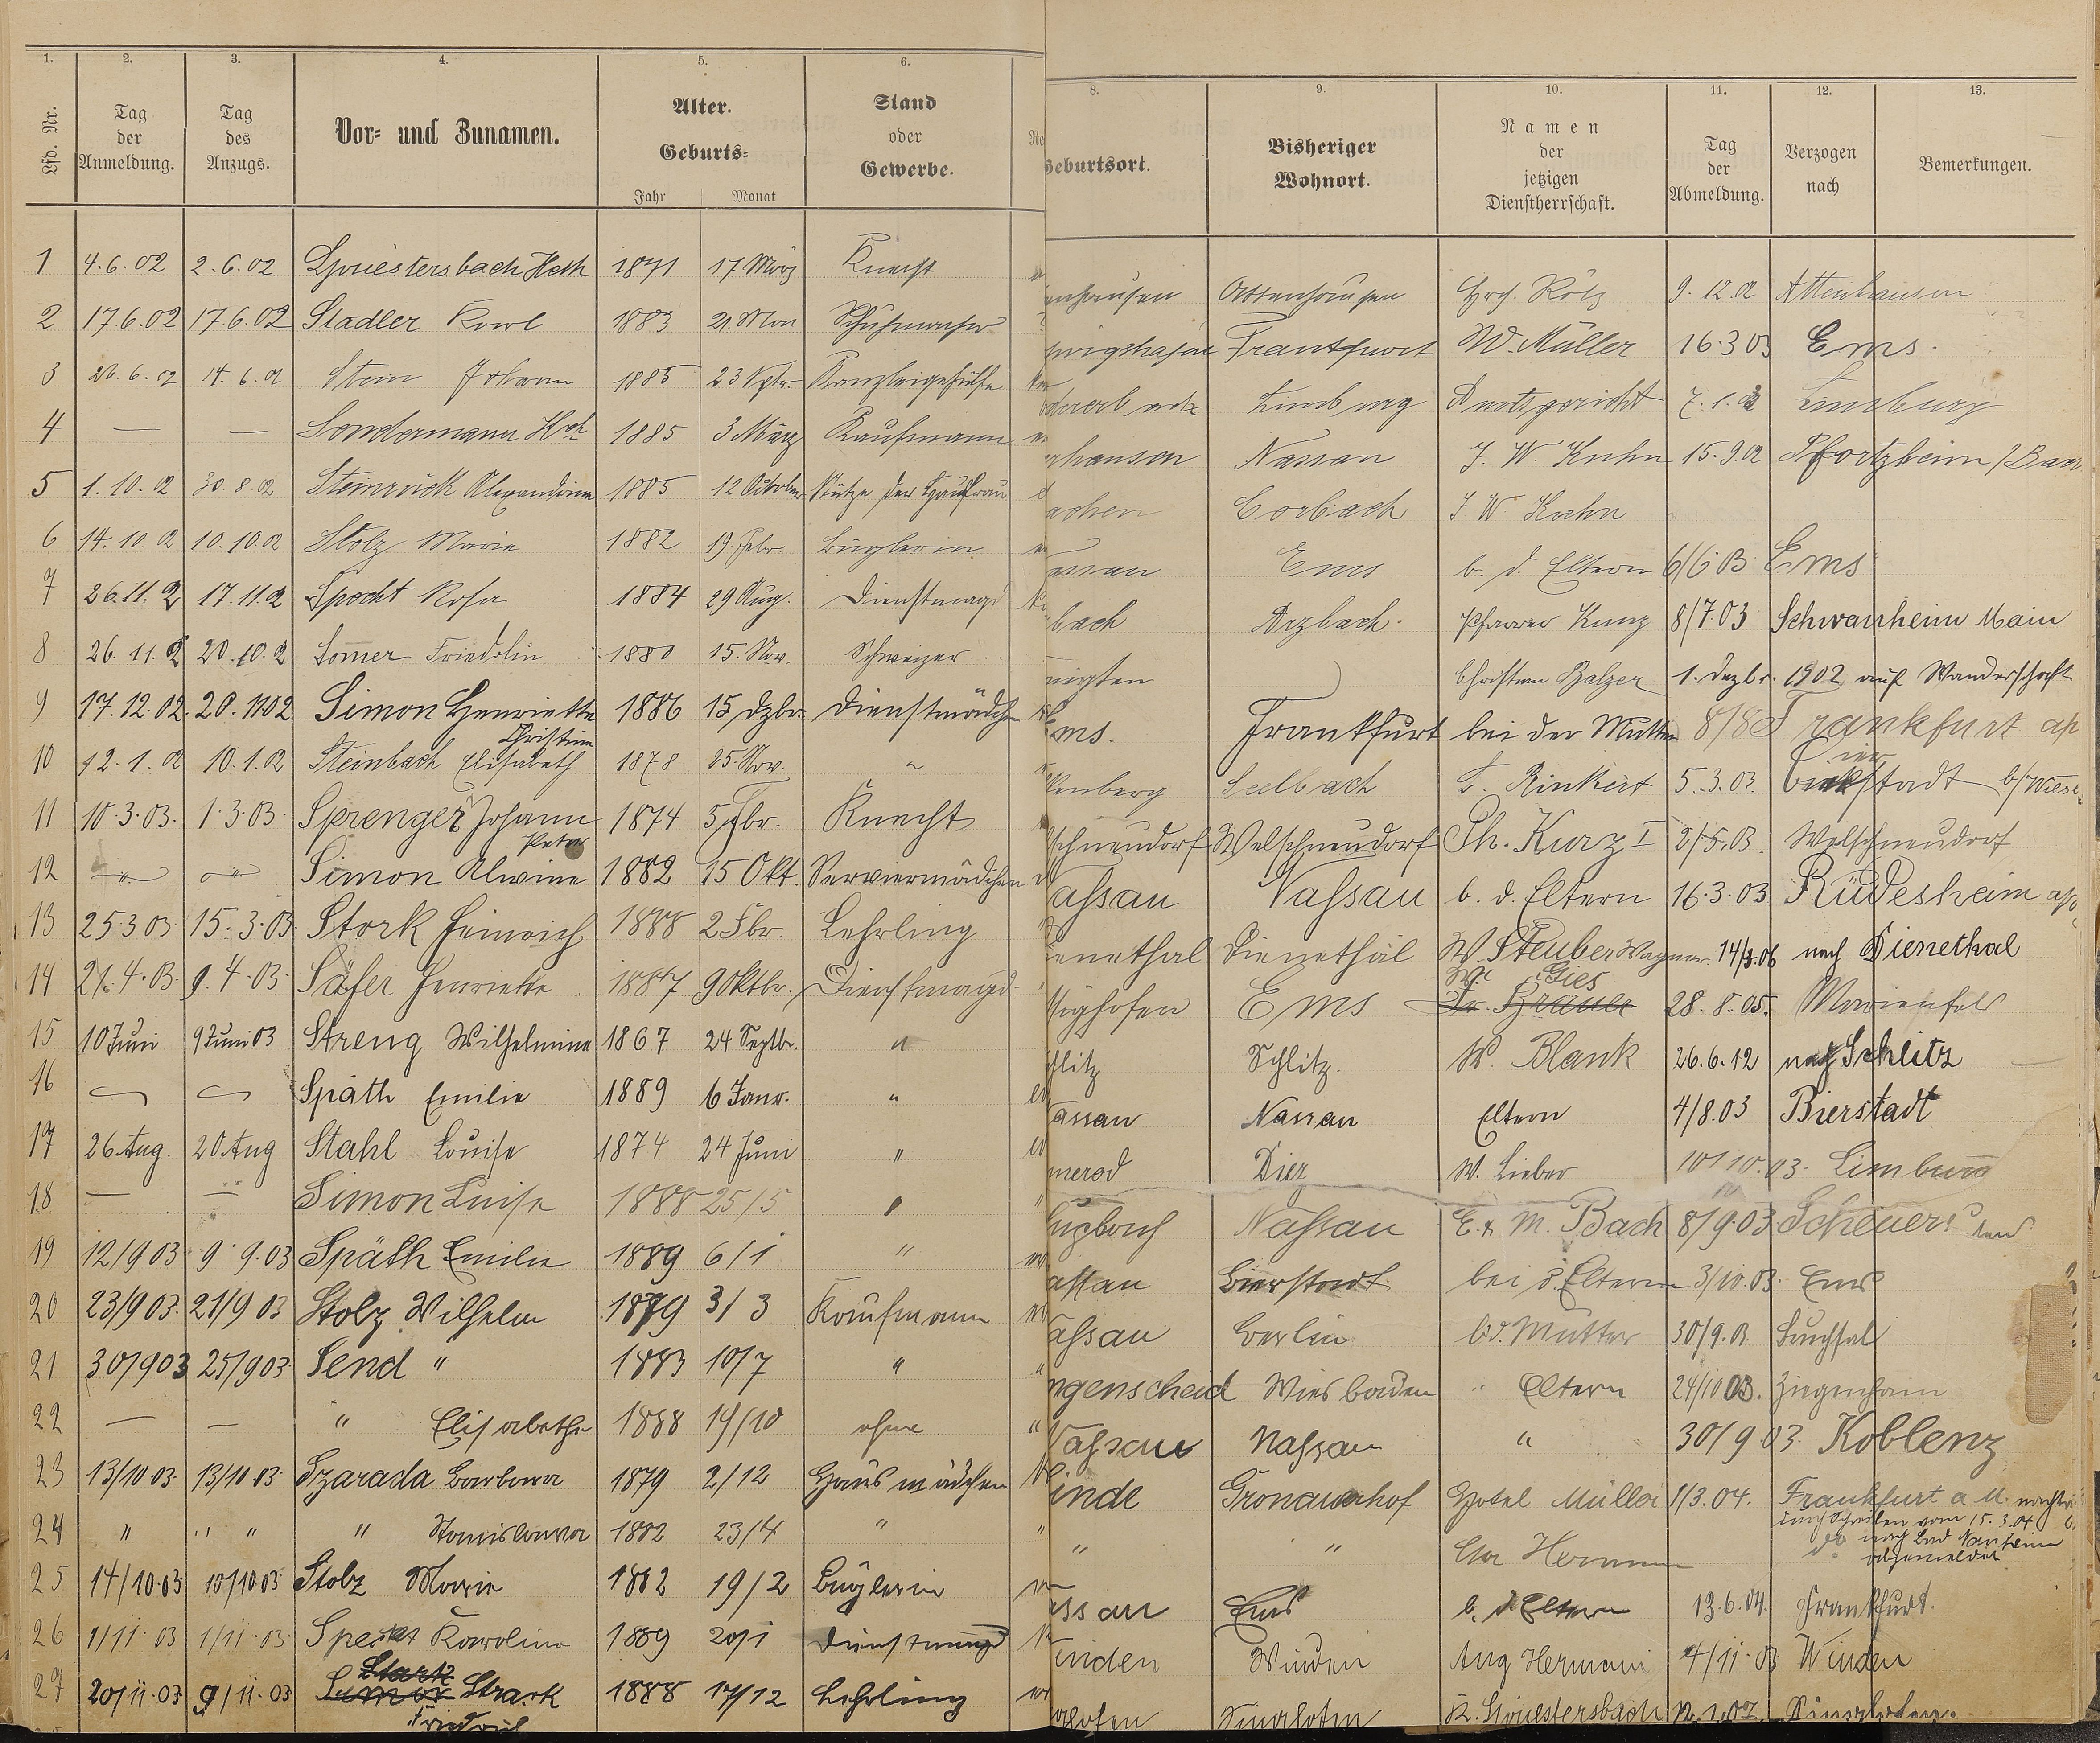 1. 2. 3. 4. 5. 6. 8. 9. 10. 11. 12. 13.
Lfd. Nr. Tag der Anmeldung. Tag des Anzugs. Vor= und Zunamen. Alter. Geburts= Jahr Monat Stand oder Gewerbe. Geburtsort. Bisheriger Wohnort. Namen der jetzigen Dienstherrschaft. Tag der Abmeldung. Verzogen nach Bemerkungen.
1 4.6.02 2.6.02 Spriestersbach 1871 17 März Knecht enhausen Attenhausen 9.12.02 Attenhausen
2 17.6.02 17.6.02 Stadler Karl 1883 21. Mai Schuhmacher wigshafen Frankfurt W. Müller 16.3 03 Ems.
3 26.6.02 14.6.02 Johann 1885 23 Kanzleigehülfe Limburg Amtsgericht Limburg
4 — — Sondermann Hch 1885 3 März Kaufmann rhausen Nassau J. W. Kuhn 15.9.02 Pfortzheim / Baden
5 1.10.02 30.8.02 Alexandrine 1885 12 October Stütze der Hausfrau achen Corbach J W. Kuhn
6 14.10.02 10.10.02 Stolz Marie 1882 19. Febr Büglerin assau Ems b. d. Eltern 6/6 03 Ems
7 26.11.02 17.11.02 Specht Rosa 1884 29 Aug. Dienstmagd bach Arzbach. Pfarrer Kunz 8/7.03 Schwanheim Main
8 26.11.02 20.10.02 Som̅er Friedolin 1880 15. Nov. Schweizer Christian Balzer 1. Dezbr. 1902 auf Wanderschaft
9 17.12.02. 20.11 02 Simon Henriette 1886 15 Dzbr. Dienstmädchen Ems. Frankfurt bei der Mutter 8/8 Frankfurt
10 12.1.02 10.1.02 Steinbach Elisabeth Christine 1878 25. Nov. " kenberg Seelbach Rinkert 5.3.03. Bierstadt b/Wiesb.
11 10.3.03. 1.3.03. Sprenger Johann Peter 1874 5 Fbr. Knecht schneudorf Welschneudorf Ph. Kurz I 2/5.03. Welschneudorf
12 " " Simon Alwine 1882 15 Okt. Serviermädchen Nassau Nassau b. d. Eltern 16.3.03 Rüdesheim
13 25.3 03. 15.3.03. Stork Heinrich 1888 2 Fbr. Lehrling ienethal Dienethal W. Steuber Wagner 14/3.06 nach Dienethal
14 21.4.03. 9.4.03. Säfer Henriette 1887 9 Oktbr. Dienstmagd sighofen Ems Fr. Brauer Gies 28.8.05. Marienfels
15 10 Juni 9 Juni 03 Streng Wilhelmine 1867 24 Septbr. " hlitz Schlitz. W. Blank 26.6.12 nach Schlitz
16 Späth Emilie 1889 6 Janr. " assau Nassau Eltern 4/8.03 Bierstadt
17 26 Aug. 20 Aug Stahl Louise 1874 24 Juni " merod Diez W. Lieber 10/10.03. Limburg
18 — — Simon Luise 1888 25/5 " Nassau E. & M. Bach 8/9.03 Scheuern
19 12/9 03 9.9.03 Späth Emilie 1889 6/1 " assau Bierstadt bei d. Eltern 3/10.03. Ems
20 23/9 03. 21/9 03 Stolz Wilhelm 1879 3/3 Kaufmann assau Berlin b d. Mutter 30/9.03 Bruchsal
21 30/9 03 25/9 03. Send " 1883 10/7 " ngenscheid Wiesbaden " Eltern 24/10 03. Ziegenhain
22 — — " Elisabethe 1888 14/10 ohne " Nassau Nassau " 30/9 03. Koblenz
23 13/10.03. 13/10.03. Szarada Barbara 1879 2/12 Hausmädchen inde Gronauerhof Hotel Müller 1/3.04. Frankfurt a M.
Schreiben vom 15.3.04
24 " " " " Stanislawa 1882 23/4 " " " " Hermann do nach Bad Nauheim abgemeldet
25 14/10.03 10/10.03 Stolz Marie 1882 19/2 Büglerin assau Ems b. d Eltern 13.6.04. Frankfurt.
26 1/11.03 1/11.03. Specht Karoline 1889 20/1 Dienstmagd inden Winden Aug Hermann 4/11.03 Winden
27 20/11.03 9/11.03 Stark Simon Strack Friedrich 1888 17/12 Lehrling Spriestersbach